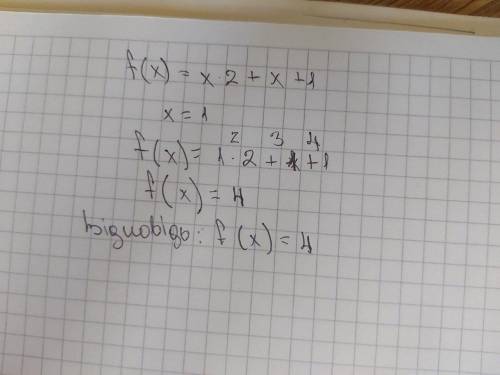 f(x) = x·2 + x + 1
x = 1
2 3 4
f(x) = 1·2 + 1 + 1
f(x) = 4
Відповідь: f(x) = 4